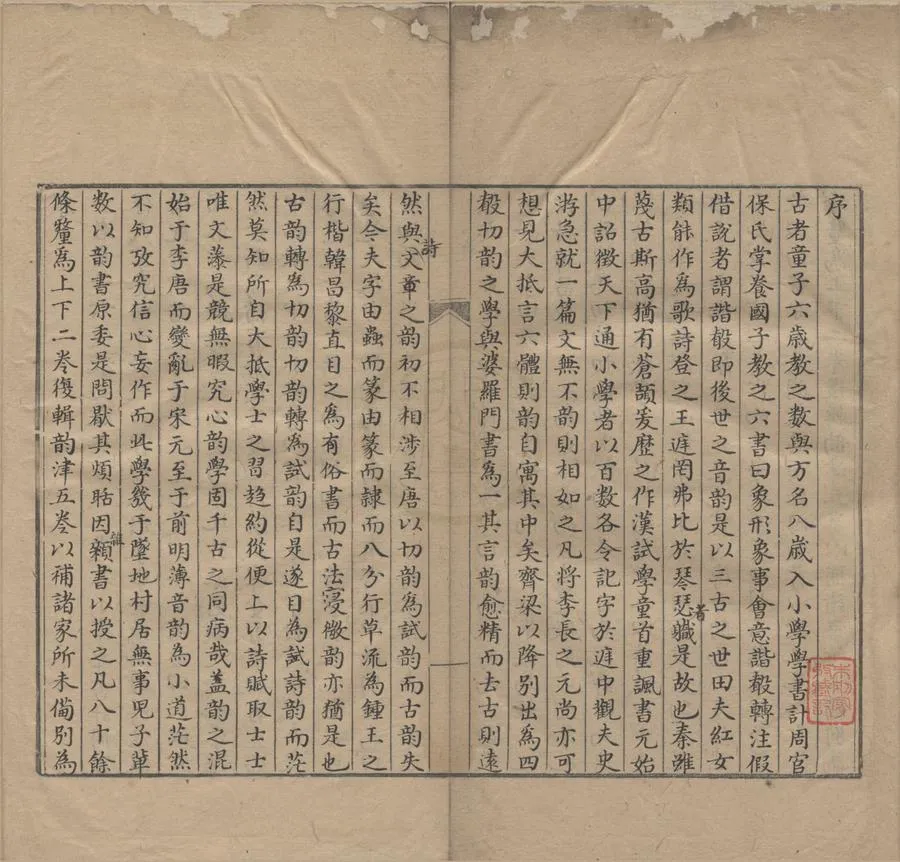 序
古者童子六歳教之数與方名八歳入小學學書計周官
保氏掌養國子教之六書曰象形象事會意諧殸轉注假
借説者謂諧殸即後世之音韵是以三古之世田夫紅女
類能作為歌詩登之王廷罔弗比於琴瑟職是故也秦雖
蔑古斯高猶有蒼頡爰歷之作漢試學童首重諷書元始
中詔徴天下通小學者以百数各令記字於廷中觀夫史
游急就一篇文無不韵則相如之凡將李長之元尚亦可
想見大抵言六體則韵自寓其中矣齊梁以降別出為四
殸切韵之學與婆羅門書為一其言韵愈精而去古則遠
然與詩文章之韵初不相涉至唐以切韵為試韵而古韵失
矣今夫字由蟲而篆由篆而隷而八分行草流為鍾王之
行楷韓昌黎直目之為有俗書而古法寖微韵亦猶是也
古韵轉為切韵切韵轉為試韵自是遂目為試詩韵而茫
然莫知所自大抵學士之習趋約從便上以詩賦取士士
唯文藻是競無暇究心韵學固千古之同病哉盖韵之混
始于李唐而變亂于宋元至于前明薄音韵為小道茫然
不知攷究信心妄作而此學幾于墜地村居無事児子軰
数以韵書原委是問厭其煩聒因雜纇書以授之凡八十餘
條釐為上下二卷復輯韵津五卷以補諸家所未僃別為